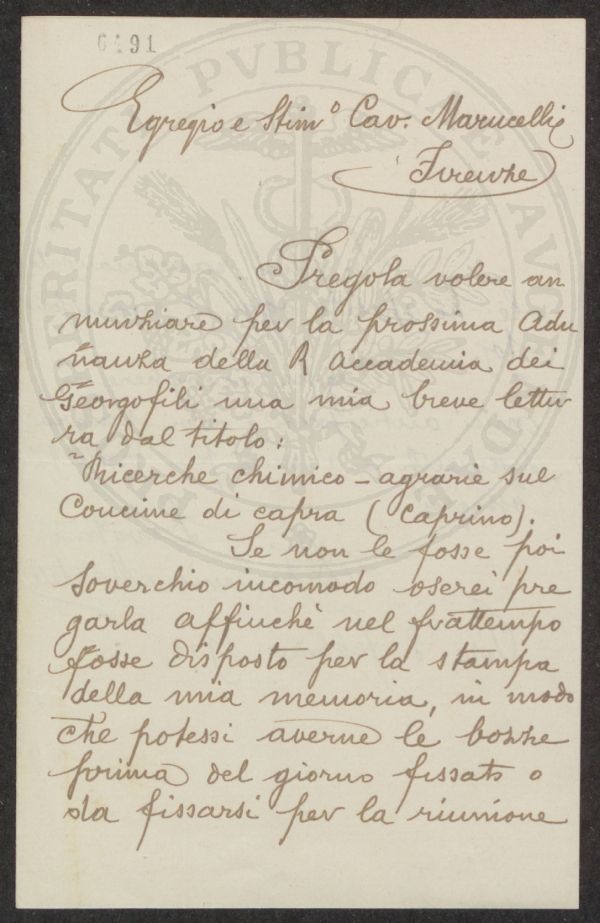 6491
PROSPERITATI PVBLICAE AVGENDAE
Egregio e Stim.o Cav. Marucelli
Firenze
Pregola volere an
nunziare per la prossima Adu
nanza della R Accademia dei
Georgofili una mia breve lettu
ra dal titolo:
Ricerche chimico-agrarie sul
Concime di capra (Caprino).
Se non le fosse poi
soverchio incomodo oserei pre
garla affinchè nel frattempo
fosse disposto per la stampa
della mia memoria, in modo
che potessi averne le bozze
prima del giorno fissato o
da fissarsi per la riunione